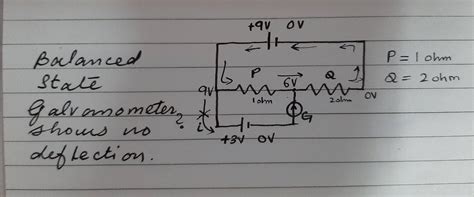 +9V 0V
Balanced
State
Galvanometer
shows no
deflection.
P Q
P = 1 ohm
Q = 2 ohm
9V 6V 0V
1ohm 2ohm
? G
i
+3V 0V